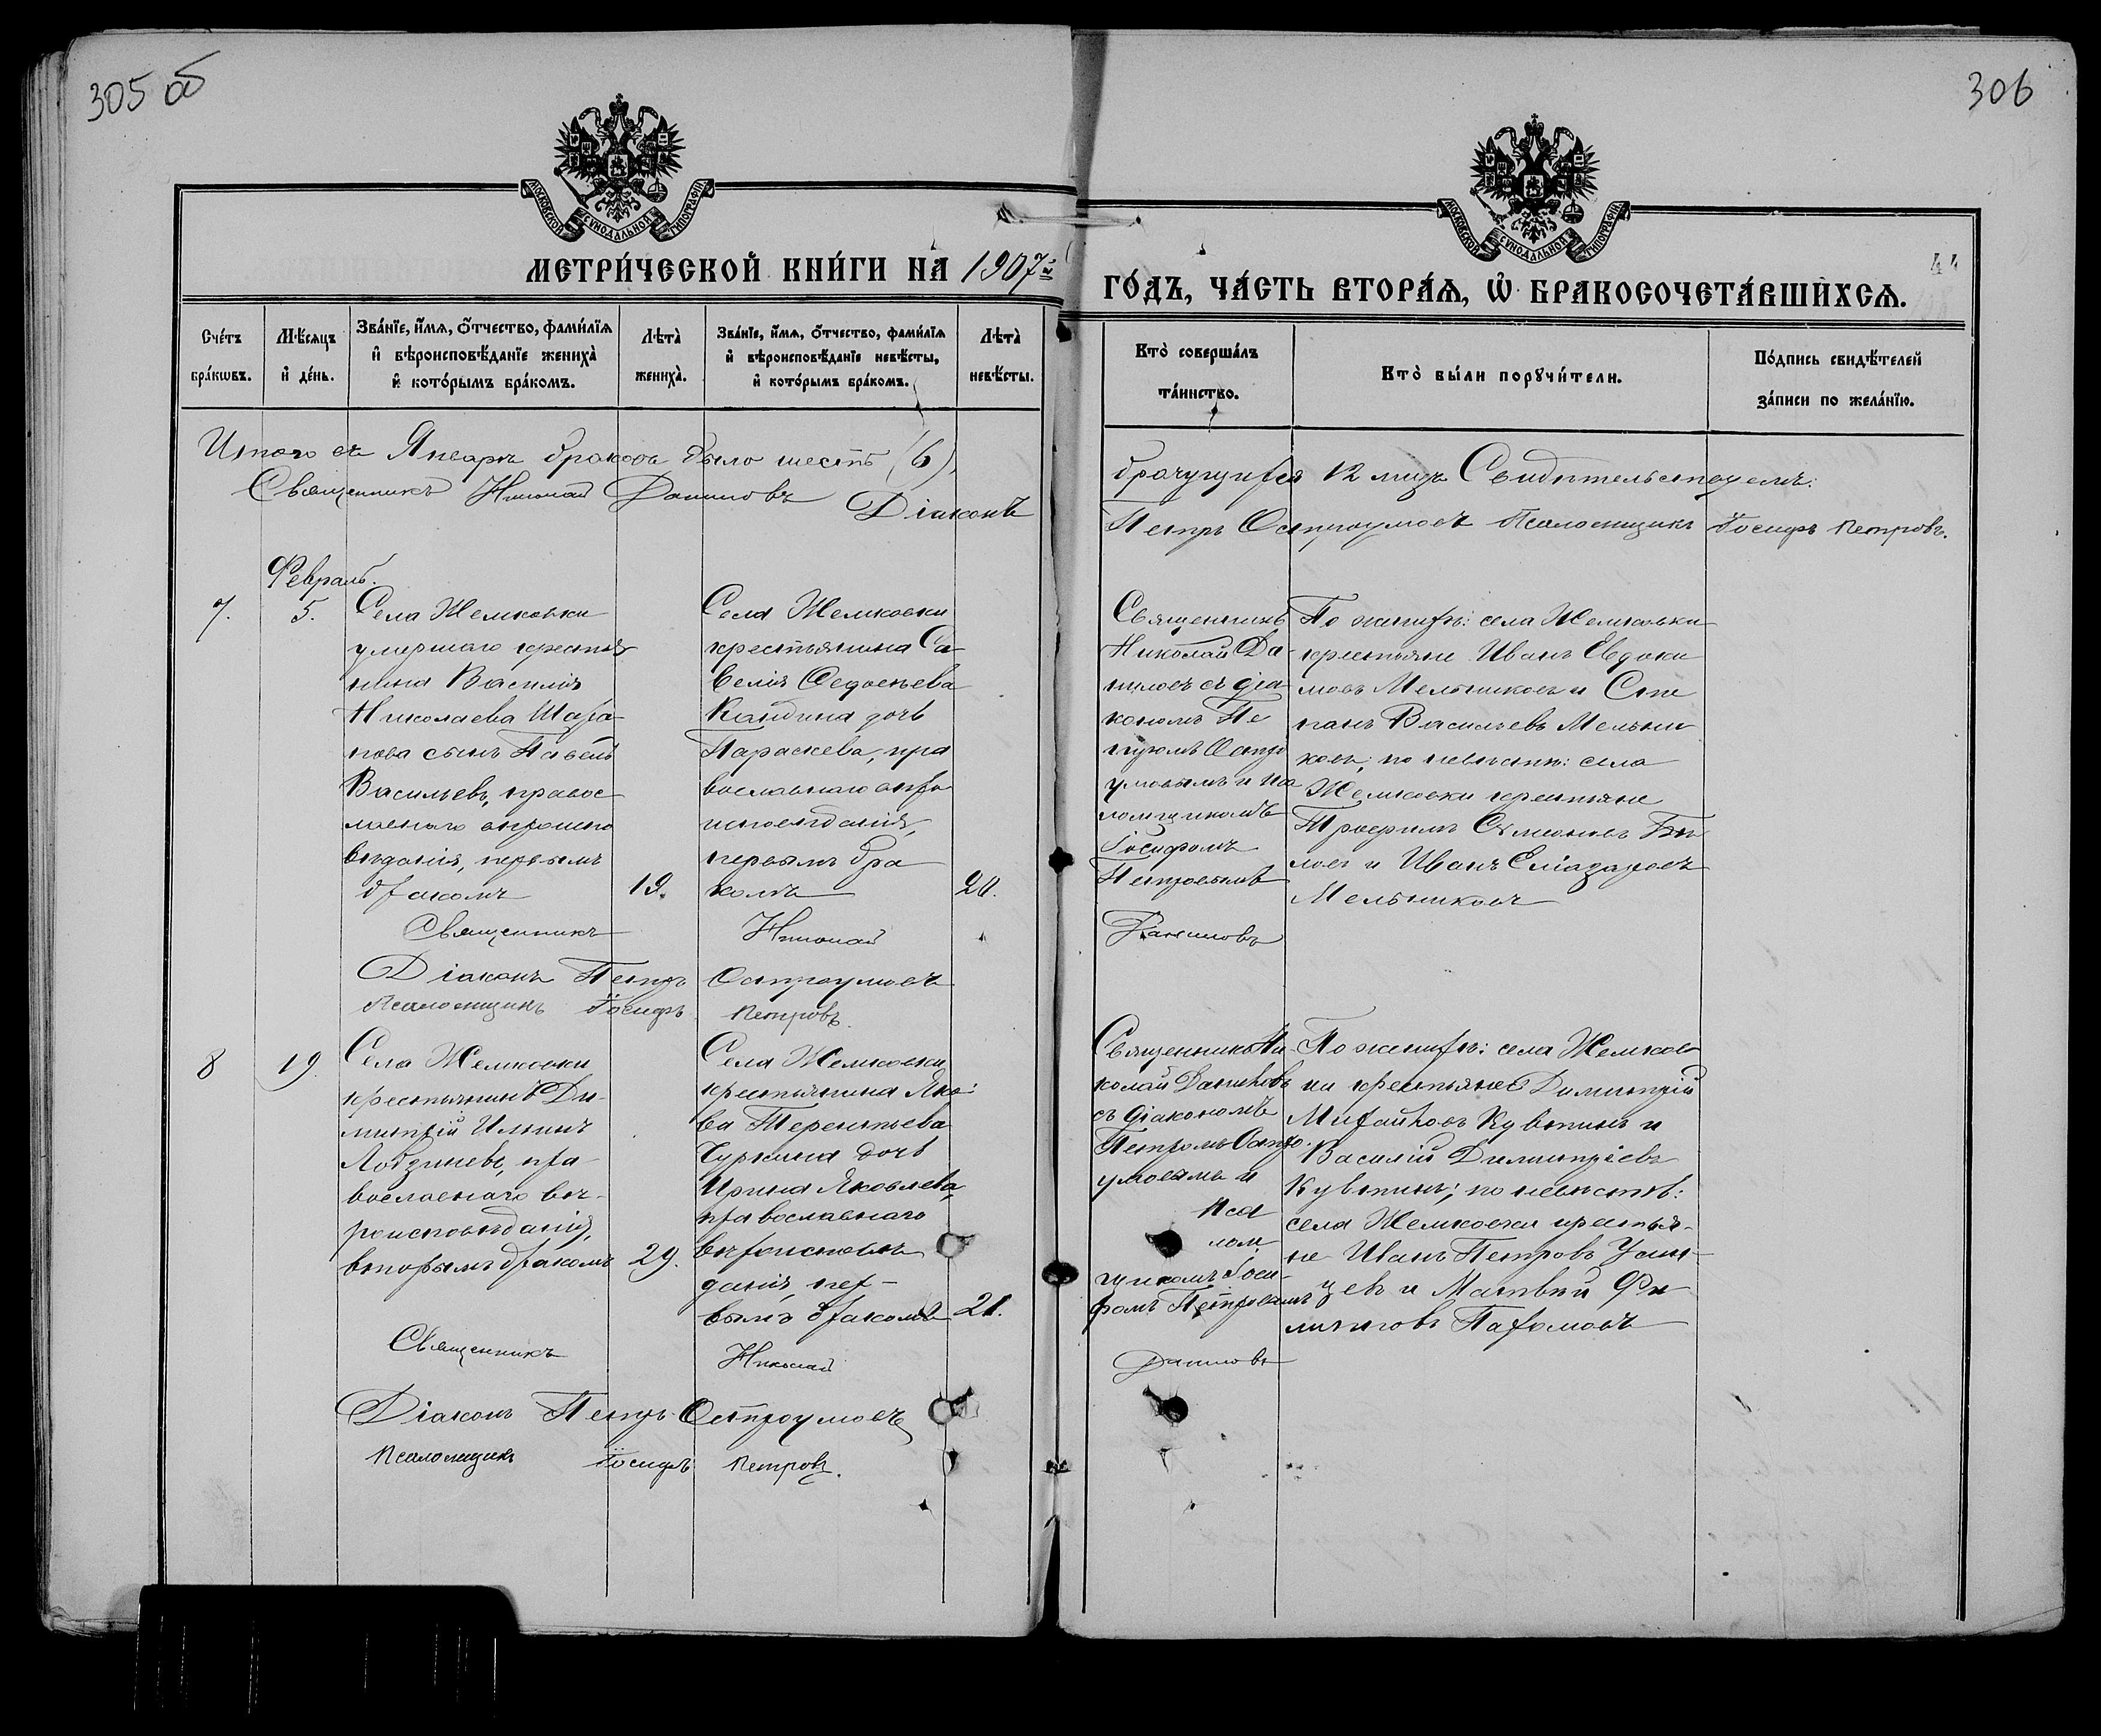 305 об
306
МОСКОВСКОЙ СѴНОДАЛЬНОЙ ТИПОГРАФІИ
МОСКОВСКОЙ СѴНОДАЛЬНОЙ ТИПОГРАФІИ
МЕТРИ́ЧЕСКОЙ КНИ́ГИ НА 1907й
ГО́ДЪ, ЧА́СТЬ ВТОРА́Ѧ, Ѡ҆ БРАКОСОЧЕТА́ВШИХСѦ.
44
Сче́тъ
бра́кѡвъ.
Мѣ́сѧцъ
и҆ де́нь.
Зва́нїе, и҆́мѧ, ѻ҆́тчество, фами́лїѧ
и҆ вѣроисповѣ́данїе жениха̀
и҆ кото́рымъ бра́комъ.
Лѣта̀
жениха̀.
Зва́нїе, и҆́мѧ, ѻ҆́тчество, фами́лїѧ
и҆ вѣроисповѣ́данїе невѣ́сты,
и҆ кото́рымъ бра́комъ.
Лѣта̀
невѣ́сты.
Кто̀ соверша́лъ
та́инство.
Кто̀ бы́ли порꙋчи́тели.
По́дпись свидѣ́телей
за́писи по жела́нїю.
Итого въ Январѣ браковъ было шесть (6),
брачущихся 12 лицъ Свидѣтельствуемъ:
Священникъ Николай Даниловъ Діаконъ
Петръ Остроумовъ Псаломщикъ Іосифъ Петровъ.
Февраль.
7.
5.
Села Жемковки
умершаго крестья
нина Василія
Николаева Шара
пова сынъ Павелъ
Васильевъ, правос
лавнаго вѣроиспо
вѣданія, первымъ
бракомъ
19.
Села Жемковки
крестьянина Са
велія Федосѣева
Кандина дочь
Параскева, пра
вославнаго вѣро
исповѣданія,
первымъ бра
комъ
20.
Священникъ
Николай Да-
ниловъ съ діа
кономъ Пе
тромъ Остро
умовымъ и пса
ломщикомъ
Іосифомъ
Петровымъ
По женихѣ: села Жемковки
крестьяне Иванъ Евдоки
мовъ Мельниковъ и Сте
панъ Васильевъ Мельни
ковъ; по невѣстѣ: села
Жемковки крестьяне
Трофимъ Симоновъ Бѣ
ловъ и Иванъ Еліазаровъ
Мельниковъ
Священникъ Николай Даниловъ
Діаконъ Петръ Остроумовъ
Псаломщикъ Іосифъ Петровъ.
8
19
Села Жемковки
крестьянинъ Ди-
митрій Ильинъ
Лобзиневъ, пра
вославнаго вѣ-
роисповѣданія,
вторымъ бракомъ
29.
Села Жемковки
крестьянина Яко
ва Терентьева
Чуркина дочь
Ирина Яковлева,
православнаго
вѣроисповѣ
данія, пер-
вымъ бракомъ
21.
Священникъ Ни-
колай Даниловъ
съ діакономъ
Петромъ Остро-
умовымъ и
пса
лом
щикомъ Іоси-
фомъ Петровымъ
По женихѣ: села Жемков
ки крестьяне Димитрій
Михайловъ Кувтинъ и
Василій Димитріевъ
Кувтинъ; по невѣстѣ:
села Жемковки крестья-
не Иванъ Петровъ
и Матвѣй Фи
липповъ Пахомовъ
Священникъ Николай Даниловъ
Діаконъ Петръ Остроумовъ
Псаломщикъ Іосифъ Петровъ.